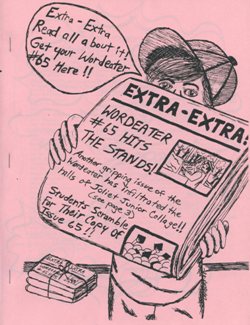 Extra - Extra
Read all about it!
Get your Wordeater
#65 Here!!
EXTRA-EXTRA:
WORDEATER
#65 HITS
THE STANDS!
Another gripping issue of the
Wordeater has infiltrated the
halls of Joliet Junior Collage!!
(see page 3)
Students Scramble
for Their Copy of
Issue 65!!